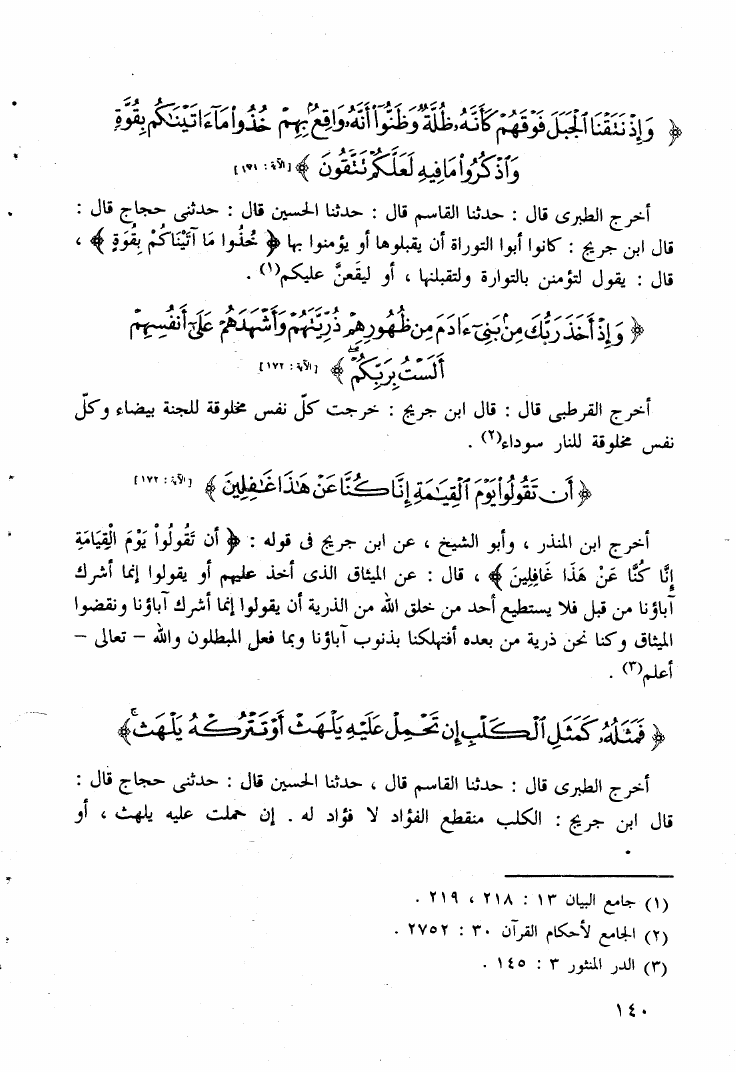 ﴿ وَإِذْ نَتَقْنَا ٱلْجَبَلَ فَوْقَهُمْ كَأَنَّهُۥ ظُلَّةٌ وَظَنُّوٓا۟ أَنَّهُۥ وَاقِعٌۢ بِهِمْ خُذُوا۟ مَآ ءَاتَيْنَـٰكُم بِقُوَّةٍ
وَٱذْكُرُوا۟ مَا فِيهِ لَعَلَّكُمْ تَتَّقُونَ ﴾ [الآية : ١٧١]
أخرج الطبرى قال : حدثنا القاسم قال : حدثنا الحسين قال : حدثنى حجاج قال :
قال ابن جريج : كانوا أبوا التوراة أن يقبلوها أو يؤمنوا بها ﴿ خُذُوا مَا آتَيْنَاكُمْ بِقُوَةٍ ﴾ ،
قال : يقول لتؤمنن بالتوارة ولتقبلنها ، أو ليقعنَّ عليكم(١) .
﴿ وَإِذْ أَخَذَ رَبُّكَ مِنۢ بَنِىٓ ءَادَمَ مِن ظُهُورِهِمْ ذُرِّيَّتَهُمْ وَأَشْهَدَهُمْ عَلَىٰٓ أَنفُسِهِمْ
أَلَسْتُ بِرَبِّكُمْ ﴾ [الآية : ١٧٢]
أخرج القرطبى قال : قال ابن جريج : خرجت كلّ نفس مخلوقة للجنة بيضاء وكلّ
نفس مخلوقة للنار سوداء(٢) .
﴿ أَن تَقُولُوا۟ يَوْمَ ٱلْقِيَـٰمَةِ إِنَّا كُنَّا عَنْ هَـٰذَا غَـٰفِلِينَ ﴾ [الآية : ١٧٢]
أخرج ابن المنذر ، وأبو الشيخ ، عن ابن جريج فى قوله : ﴿ أن تَقُولُواْ يَوْمَ الْقِيَامَةِ
إِنَّا كُنَّا عَنْ هَذَا غَافِلِينَ ﴾ ، قال : عن الميثاق الذى أخذ عليهم أو يقولوا إنما أشرك
آباؤنا من قبل فلا يستطيع أحد من خلق الله من الذرية أن يقولوا إنما أشرك آباؤنا ونقضوا
الميثاق وكنا نحن ذرية من بعده أفتهلكنا بذنوب آباؤنا وبما فعل المبطلون والله – تعالى –
أعلم(٣) .
﴿ فَمَثَلُهُۥ كَمَثَلِ ٱلْكَلْبِ إِن تَحْمِلْ عَلَيْهِ يَلْهَثْ أَوْ تَتْرُكْهُ يَلْهَث ۚ ﴾
أخرج الطبرى قال : حدثنا القاسم قال ، حدثنا الحسين قال : حدثنى حجاج قال :
قال ابن جريج : الكلب منقطع الفؤاد لا فؤاد له . إن حملت عليه يلهث ، أو
(١) جامع البيان ١٣ : ٢١٨ ، ٢١٩ .
(٢) الجامع لأحكام القرآن ٣٠ : ٢٧٥٢ .
(٣) الدر المنثور ٣ : ١٤٥ .
١٤٠